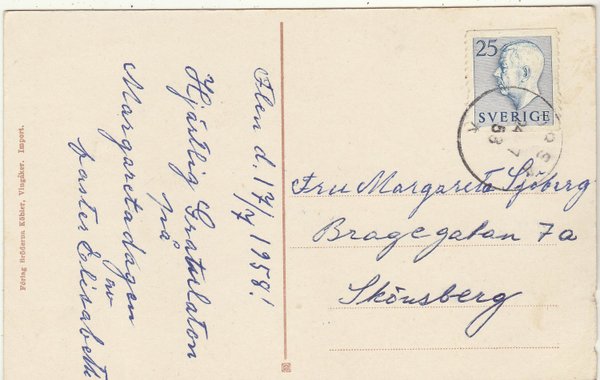 Flen d. 17/7 1958!
Hjärtlig Gratulation
på
Margaretadagen
önv
faster Elisabeth
25
SVERIGE
24 7
53
Fru Margareta Sjöberg
Bragegatan 7a
Skönsberg
Förlag Bröderna Köhler, Vingåker. Import.